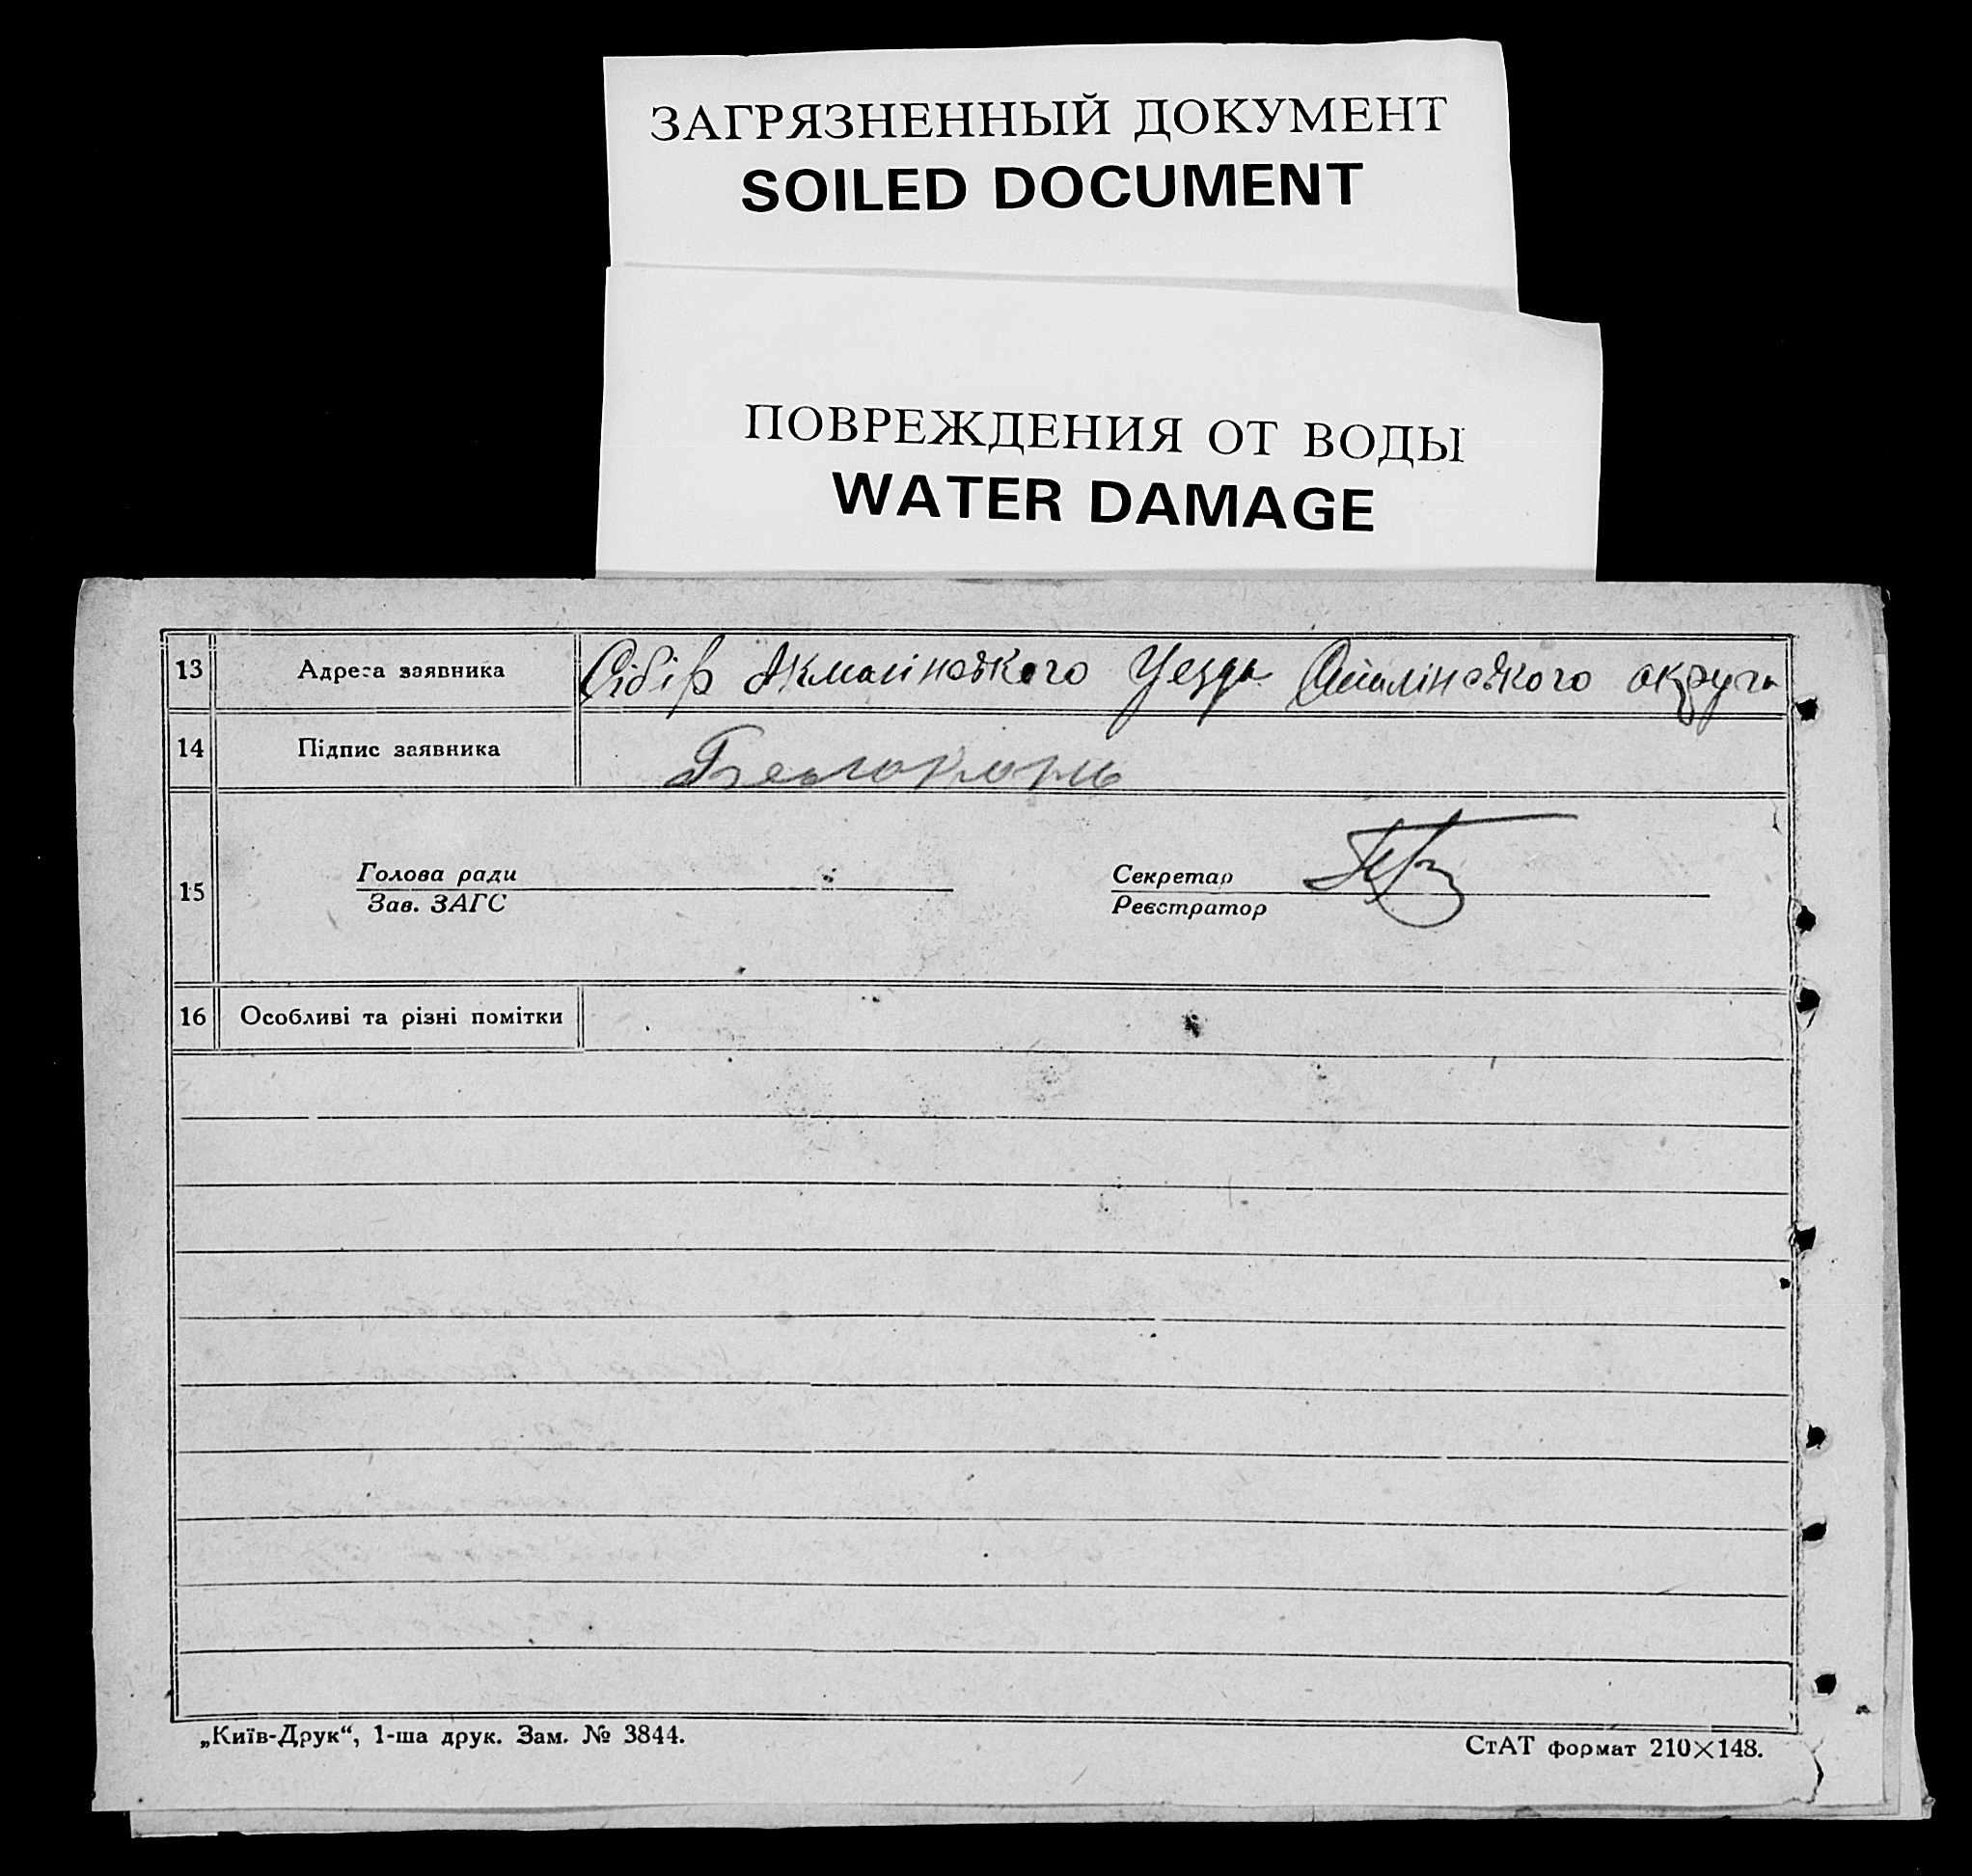 ЗАГРЯЗНЕННЫЙ ДОКУМЕНТ
SOILED DOCUMENT
ПОВРЕЖДЕНИЯ ОТ ВОДЫ
WATER DAMAGE
13 Адреса заявника Сібір Акмолінського Уезда округа
14 Підпис заявника Белоконь
15 Голова ради Секретар
Зав. ЗАГС Реєстратор
16 Особливі та різні помітки
„Київ-Друк“, 1-ша друк. Зам. № 3844.
СтАТ формат 210×148.